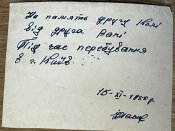 На память другу Колі
від друга Рані
Під час перебування
в г. Київ
15-XI-1950 р.